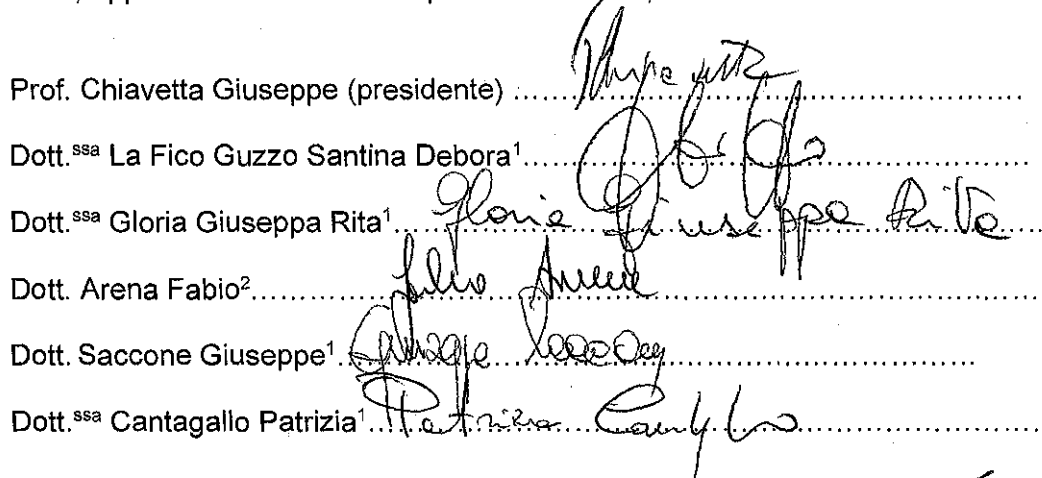 Prof. Chiavetta Giuseppe (presidente) ..........
Dott.ssa La Fico Guzzo Santina Debora¹..........
Dott.ssa Gloria Giuseppa Rita¹.......... Gloria Giuseppa Rita
Dott. Arena Fabio².......... Fabio Arena
Dott. Saccone Giuseppe¹.......... Giuseppe Saccone
Dott.ssa Cantagallo Patrizia¹.......... Patrizia